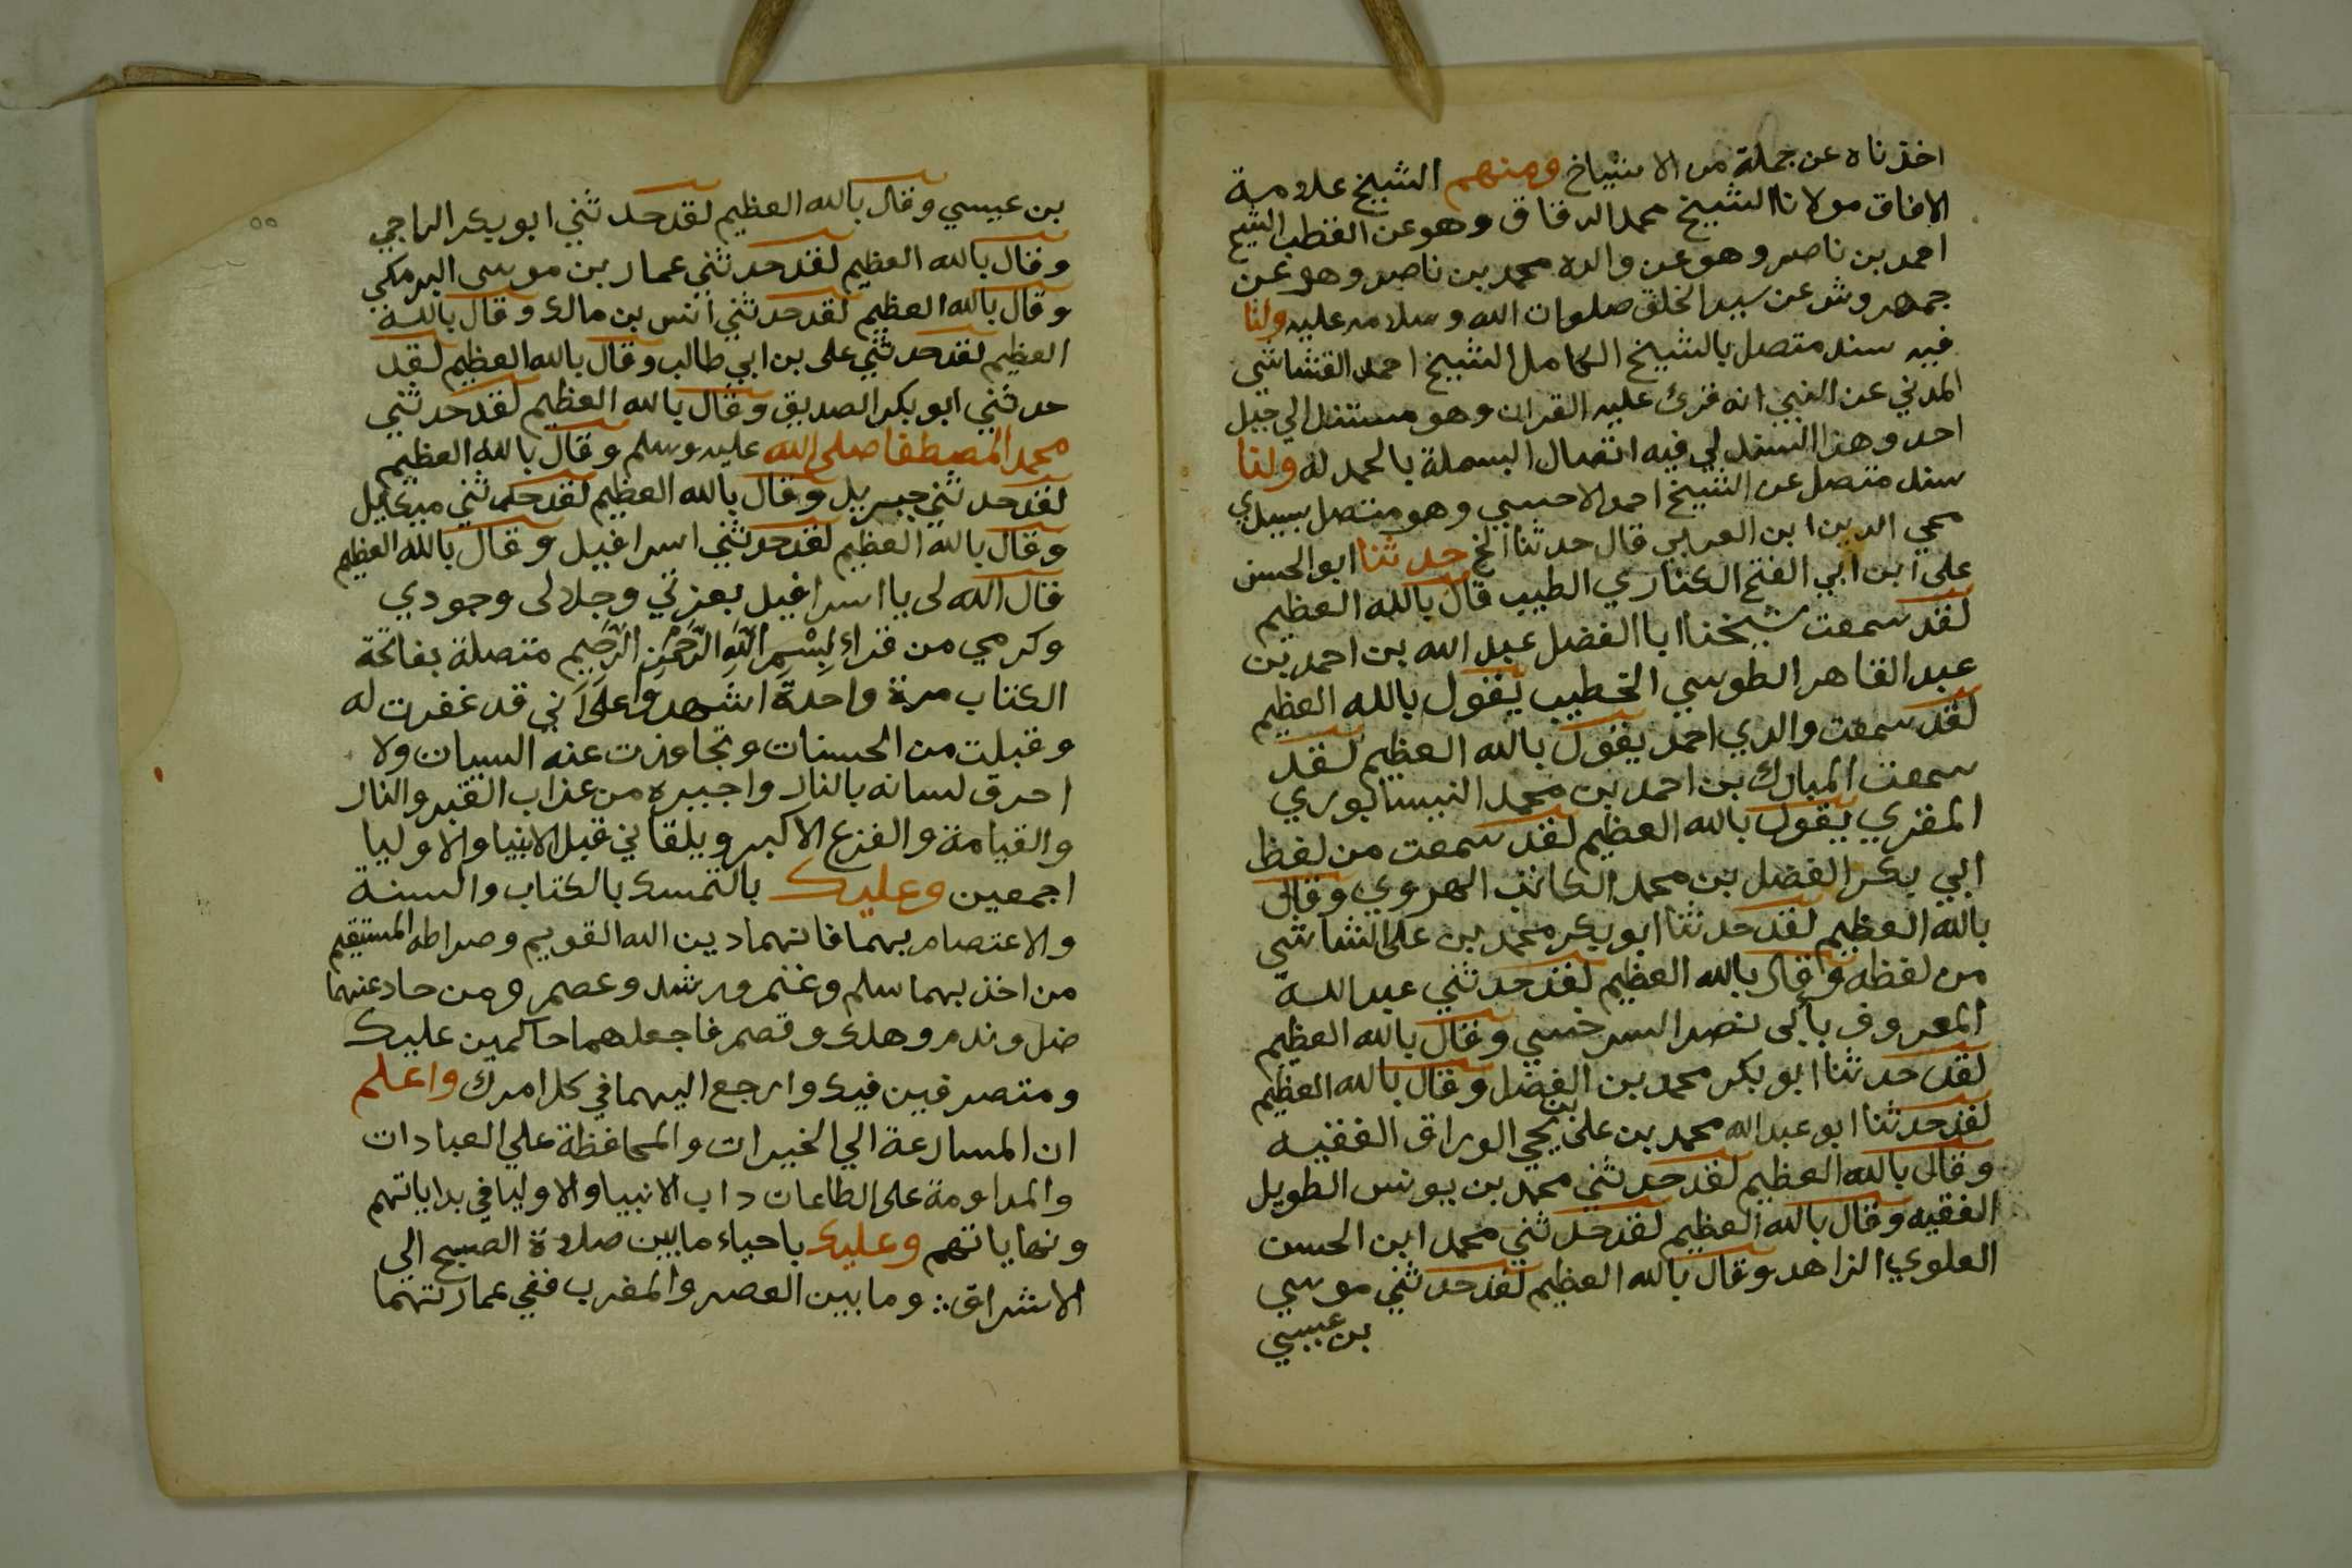 اخذناه عن جملة من الاشياخ ومنهم الشيخ علامة
الافاق مولانا الشيخ محمد الدقاق وهو عن القطب الشيخ
احمد بن ناصر وهو عن والده محمد بن ناصر وهو عن
جمهروش عن سيد الخلق صلوات الله وسلامه عليه ولنا
فيه سند متصل بالشيخ الكامل الشيخ احمد القشاشي
المدني عن النبي انه قرئ عليه القران وهو مستند الي جبل
احد وهذا السند لي فيه اتصال البسملة بالحمد له ولنا
سند متصل عن الشيخ احمد الاحسبي وهو متصل بسيدي
محي الدين ابن العربي قال حدثنا الخ حدثنا ابو الحسن
على ابن ابي الفتح الكناري الطبيب قال بالله العظيم
لقد سمعت شيخنا ابا الفضل عبد الله بن احمد بن
عبد القاهر الطوسي الخطيب يقول بالله العظيم
لقد سمعت والدي احمد يقول بالله العظيم لقد
سمعت المبارك بن احمد بن محمد النيسابوري
المقري يقول بالله العظيم لقد سمعت من لفظ
ابي بكر الفضل بن محمد الكاتب الهروي وقال
بالله العظيم لقد حدثنا ابو بكر محمد بن على الشاشي
من لفظه وقال بالله العظيم لقد حدثني عبد الله
المعروف بابي نصر السرخسي وقال بالله العظيم
لقد حدثنا ابو بكر محمد بن الفضل وقال بالله العظيم
لقد حدثنا ابو عبد الله محمد بن على بن يحيي الوراق الفقيه
وقال بالله العظيم لقد حدثني محمد بن يونس الطويل
الفقيه وقال بالله العظيم لقد حدثني محمد ابن الحسن
العلوي الزاهد وقال بالله العظيم لقد حدثني موسي
بن عيسي
بن عيسي وقال بالله العظيم لقد حدثني ابو بكر الراجي
وقال بالله العظيم لقد حدثني عمار بن موسى البرمكي
وقال بالله العظيم لقد حدثني أنس بن مالك وقال بالله
العظيم لقد حدثني على بن ابي طالب وقال بالله العظيم لقد
حدثني ابو بكر الصديق وقال بالله العظيم لقد حدثني
محمد المصطفا صلى الله عليه وسلم وقال بالله العظيم
لقد حدثني جبريل وقال بالله العظيم لقد حدثني ميكايل
وقال بالله العظيم لقد حدثني اسرافيل وقال بالله العظيم
قال الله لى يا اسرافيل بعزتي وجلالى وجودي
وكرمي من قراء بِسْمِ اللَّهِ الرَّحْمَنِ الرَّحِيمِ متصلة بفاتحة
الكتاب مرة واحدة اشهدوا على اَني قد غفرت له
وقبلت من الحسنات وتجاوزت عنه السيات ولا
احرق لسانه بالنار واجبره من عذاب القبر والنار
والقيامة والفزع الاكبر ويلقاني قبل الانبيا والاوليا
اجمعين وعليك بالتمسك بالكتاب والسنة
والاعتصام بهما فانهما دين الله القويم وصراطه المستقيم
من اخذ بهما سلم وغنم ورشد وعصم ومن حاد عنهما
ضل وندم وهلك وقصم فاجعلهما حاكمين عليك
ومتصرفين فيك وارجع اليهما في كل امرك واعلم
ان المسارعة الي الخيرات والمحافظة علي العبادات
والمداومة على الطاعات داب الانبيا والاوليا في بداياتهم
ونهاياتهم وعليك باحياء ما بين صلاة الصبح الي
الاشراق ∴ وما بين العصر والمغرب ففي عمارتهما